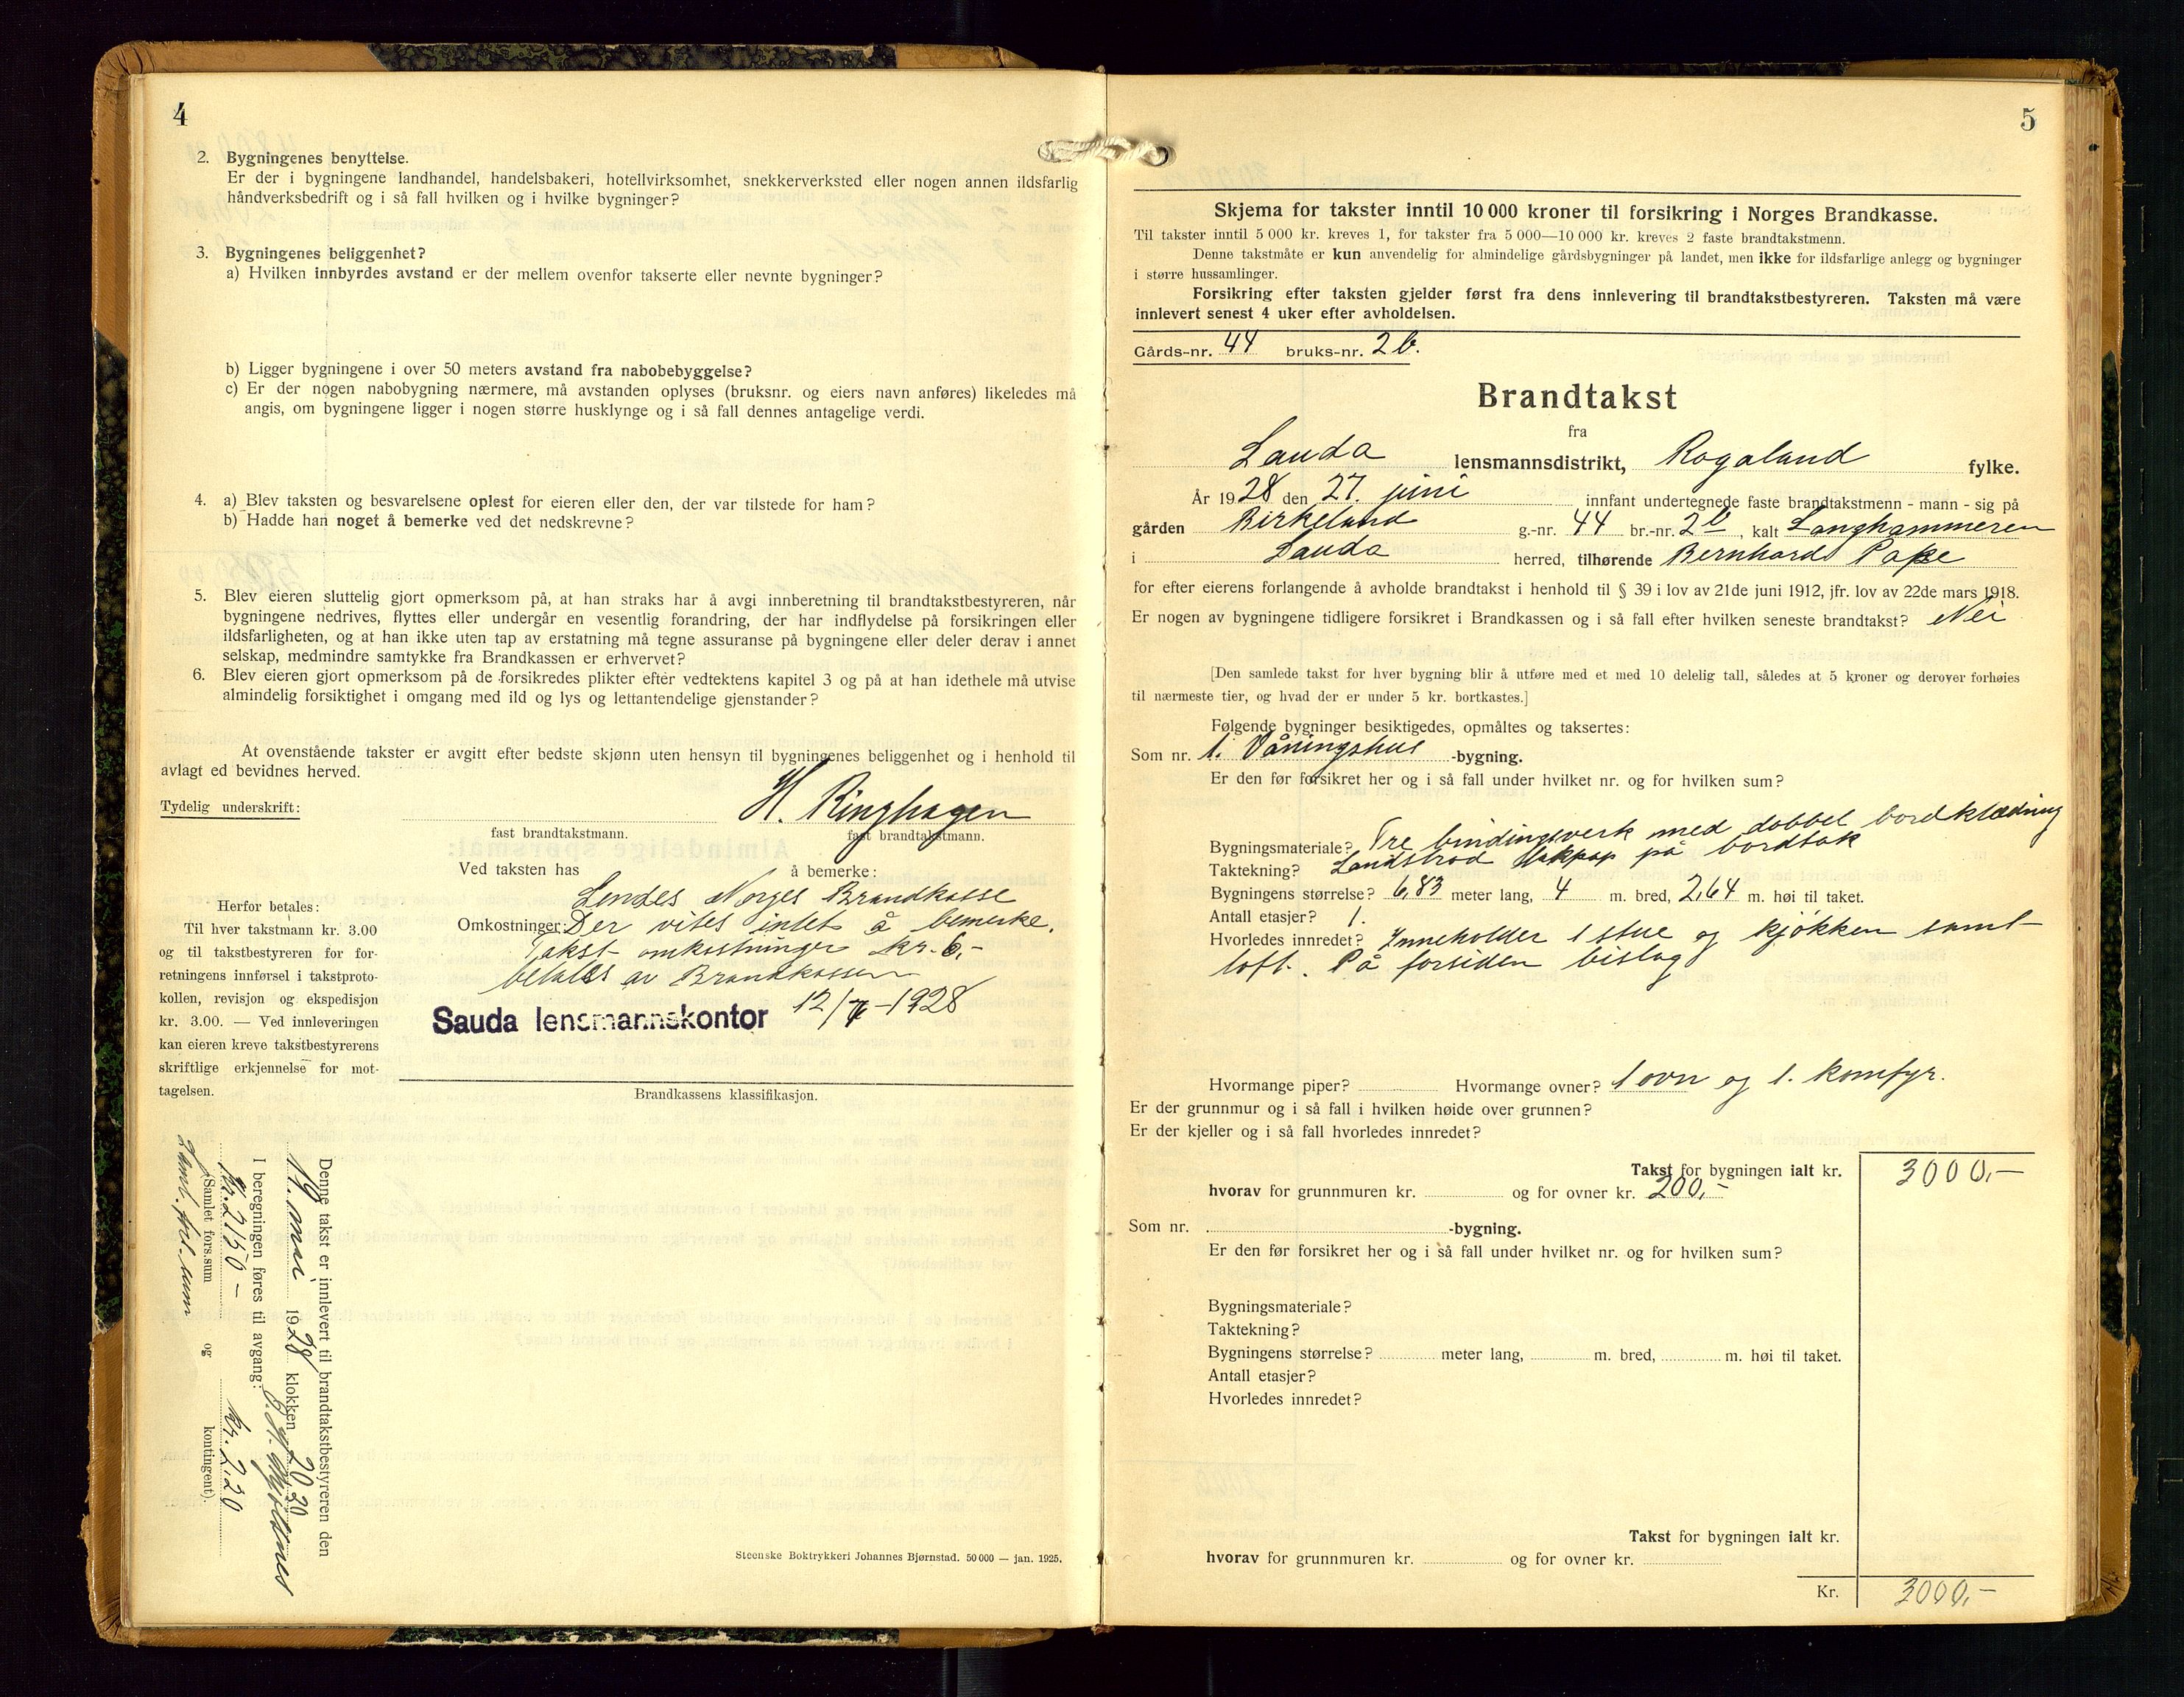 4
2. Bygningenes benyttelse.
Er der i bygningene landhandel, handelsbakeri, hotellvirksomhet, snekkerverksted eller nogen annen ildsfarlig
håndverksbedrift og i så fall hvilken og i hvilke bygninger?
3. Bygningenes beliggenhet?
a) Hvilken innbyrdes avstand er der mellem ovenfor takserte eller nevnte bygninger?
b) Ligger bygningene i over 50 meters avstand fra nabobebyggelse?
c) Er der nogen nabobygning nærmere, må avstanden oplyses (bruksnr. og eiers navn anføres) likeledes må
angis, om bygningene ligger i nogen større husklynge og i så fall dennes antagelige verdi.
4. a) Blev taksten og besvarelsene oplest for eieren eller den, der var tilstede for ham?
b) Hadde han noget å bemerke ved det nedskrevne?
5. Blev eieren sluttelig gjort opmerksom på, at han straks har å avgi innberetning til brandtakstbestyreren, når
bygningene nedrives, flyttes eller undergår en vesentlig forandring, der har indflydelse på forsikringen eller
ildsfarligheten, og at han ikke uten tap av erstatning må tegne assuranse på bygningene eller deler derav i annet
selskap, medmindre samtykke fra Brandkassen er erhvervet?
6. Blev eieren gjort opmerksom på de forsikredes plikter efter vedtektens kapitel 3 og på at han idethele må utvise
almindelig forsiktighet i omgang med ild og lys og lettantendelige gjenstander?
At ovenstående takster er avgitt efter bedste skjønn uten hensyn til bygningenes beliggenhet og i henhold til
avlagt ed bevidnes herved.
Tydelig underskrift: H. Ringhagen
fast brandtakstmann. fast brandtakstmann.
Ved taksten has å bemerke:
Sendes Norges Brandkasse
Omkostninger: Der vites intet å bemerke.
Takst omkostninger kr. 6,-
betales av Brandkassen
Sauda lensmannskontor 12/7-1928
Brandkassens klassifikasjon.
Herfor betales:
Til hver takstmann kr. 3.00
og til takstbestyreren for for-
retningens innførsel i takstproto-
kollen, revisjon og ekspedisjon
kr. 3.00. — Ved innleveringen
kan eieren kreve takstbestyrerens
skriftlige erkjennelse for mot-
tagelsen.
Denne takst er innlevert til brandtakstbestyreren den
19. mai 1928 klokken 20 20
I beregningen føres til avgang:
kr. 2150 - kr. 2,20
(Samlet fors.sum og kontingent).
Saml. fors. sum
Steenske Boktrykkeri Johannes Bjørnstad. 50 000 — jan. 1925.
5
Skjema for takster inntil 10 000 kroner til forsikring i Norges Brandkasse.
Til takster inntil 5 000 kr. kreves 1, for takster fra 5 000—10 000 kr. kreves 2 faste brandtakstmenn.
Denne takstmåte er kun anvendelig for almindelige gårdsbygninger på landet, men ikke for ildsfarlige anlegg og bygninger
i større hussamlinger.
Forsikring efter taksten gjelder først fra dens innlevering til brandtakstbestyreren. Taksten må være
innlevert senest 4 uker efter avholdelsen.
Gårds-nr. 44 bruks-nr. 2 b.
Brandtakst
fra
Sauda lensmannsdistrikt, Rogaland fylke.
År 1928 den 27. juni innfant undertegnede faste brandtakstmenn - mann - sig på
gården Birkeland g.-nr. 44 br.-nr. 2 b, kalt Langhammeren
i Sauda herred, tilhørende Bernhard Pape
for efter eierens forlangende å avholde brandtakst i henhold til § 39 i lov av 21de juni 1912, jfr. lov av 22de mars 1918.
Er nogen av bygningene tidligere forsikret i Brandkassen og i så fall efter hvilken seneste brandtakst? Nei
[Den samlede takst for hver bygning blir å utføre med et med 10 delelig tall, således at 5 kroner og derover forhøies
til nærmeste tier, og hvad der er under 5 kr. bortkastes.]
Følgende bygninger besiktigedes, opmåltes og taksertes:
Som nr. 1. Våningshus -bygning.
Er den før forsikret her og i så fall under hvilket nr. og for hvilken sum?
Bygningsmateriale? Tre bindingsverk med dobbel bordklædning
Taktekning? takpap på bordtak
Bygningens størrelse? 6,83 meter lang, 4 m. bred, 2,64 m. høi til taket.
Antall etasjer? 1.
Hvorledes innredet? Inneholder 1 stue og kjøkken samt
loft. På forsiden bislag
Hvormange piper? Hvormange ovner? 1 ovn og 1. komfyr.
Er der grunnmur og i så fall i hvilken høide over grunnen?
Er der kjeller og i så fall hvorledes innredet?
Takst for bygningen ialt kr. 3000,-
hvorav for grunnmuren kr. og for ovner kr. 200,-
Som nr. -bygning.
Er den før forsikret her og i så fall under hvilket nr. og for hvilken sum?
Bygningsmateriale?
Taktekning?
Bygningens størrelse? meter lang, m. bred, m. høi til taket.
Antall etasjer?
Hvorledes innredet?
Takst for bygningen ialt kr.
hvorav for grunnmuren kr. og for ovner kr.
Kr. 3000,-